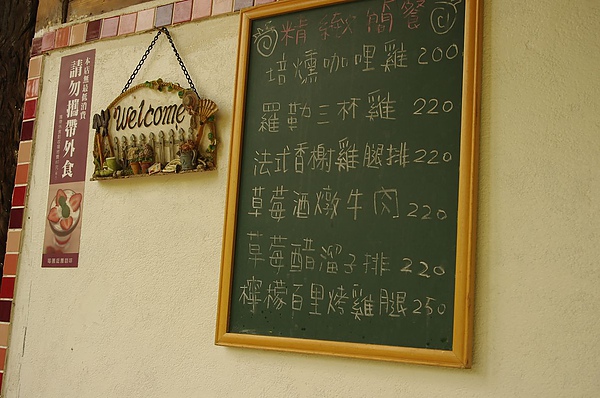 本店無最低消費
請勿攜帶外食
Welcome
精緻簡餐
培燻咖哩雞 200
羅勒三杯雞 220
法式香榭雞腿排 220
草莓酒燉牛肉 220
草莓醋溜子排 220
檸檬百里烤雞腿 250